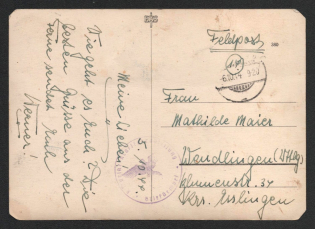 Meine Lieben!
5.10.44.
Wie geht es Euch? Die
besten Grüsse aus der
Ferne sendet Euch
Werner!
Feldpost
Frau
Mathilde Maier
Wendlingen (Wttbg)
Blumenstr. 34
Krs. Esslingen